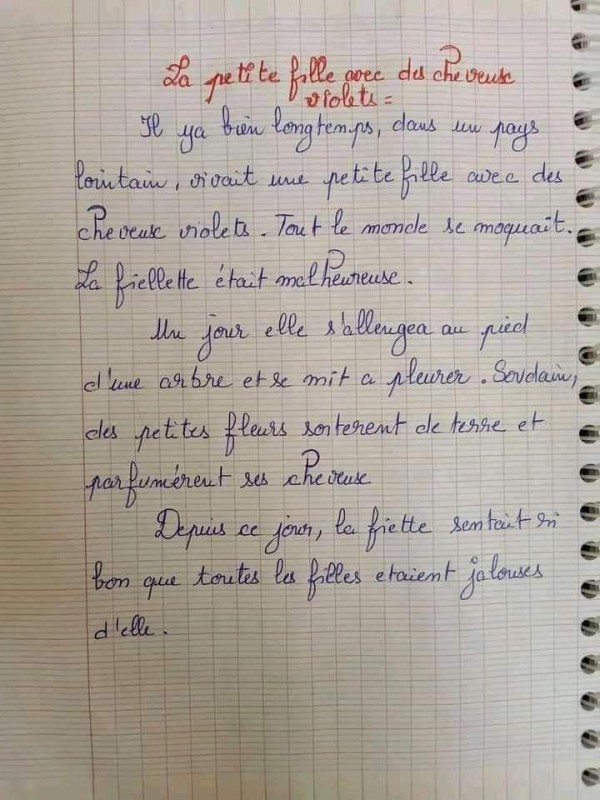 La petite fille avec des cheveux
violets =
Il ya bien longtemps, dans un pays
lointain, vivait une petite fille avec des
cheveux violets. Tout le monde se moquait.
La fiellette était malheureuse.
Un jour elle s'allengea au pied
d'une arbre et se mit a pleurer. Soudain,
des petites fleurs sorterent de terre et
parfumérent ses cheveux
Depuis ce jour, la fiette sentait si
bon que toutes les filles etaient jalouses
d'elle.